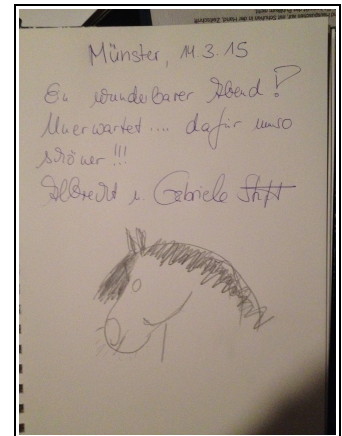 Münster, 14.3.15
Ein wunderbarer Abend!
Unerwartet.... dafür umso
schöner!!!
Albrecht u. Gabriele